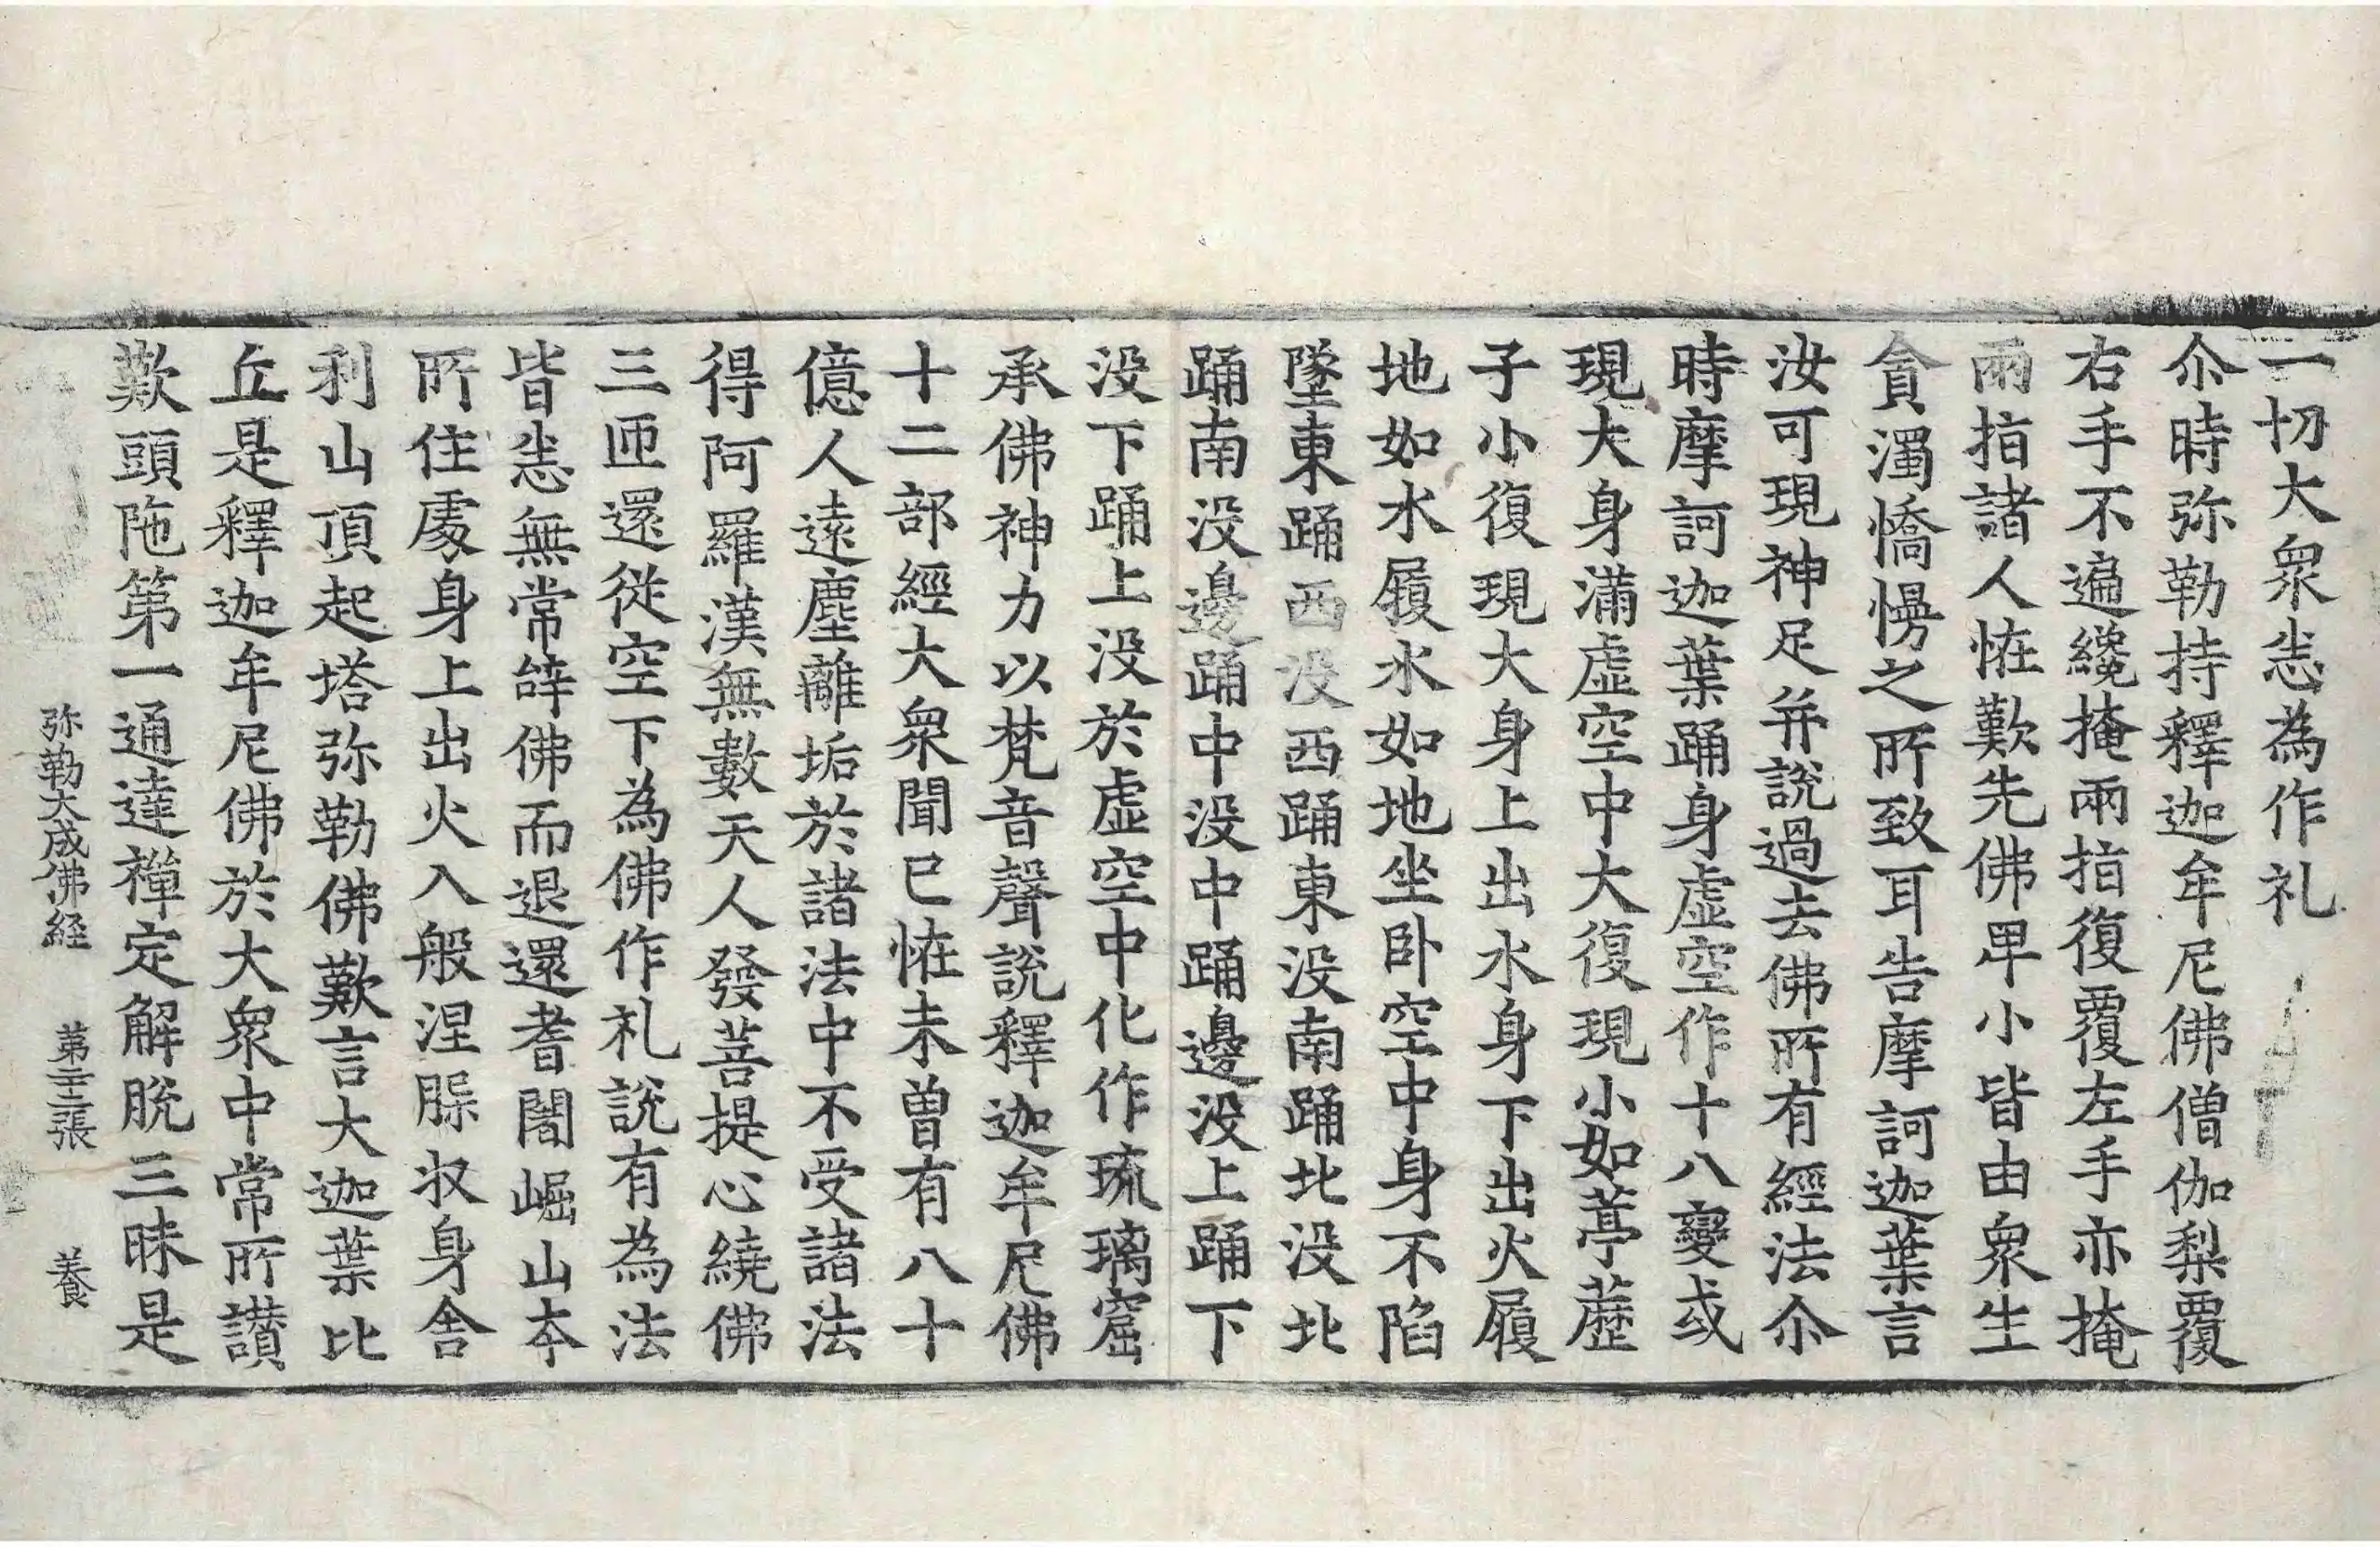 一切大衆悉為作礼
尒時弥勒持釋迦牟尼佛僧伽梨覆
右手不遍纔掩兩指復覆左手亦掩
兩指諸人恠歎先佛卑小皆由衆生
貪濁憍慢之所致耳告摩訶迦葉言
汝可現神足并說過去佛所有經法尒
時摩訶迦葉踊身虛空作十八變或
現大身滿虛空中大復現小如葶藶
子小復現大身上出水身下出火履
地如水履水如地坐卧空中身不陷
墜東踊西没西踊東没南踊北没北
踊南没邊踊中没中踊邊没上踊下
没下踊上没於虛空中化作琉璃窟
承佛神力以梵音聲說釋迦牟尼佛
十二部經大衆聞已恠未曾有八十
億人遠塵離垢於諸法中不受諸法
得阿羅漢無數天人發菩提心繞佛
三匝還從空下為佛作礼說有為法
皆悉無常辝佛而退還耆闍崛山本
所住處身上出火入般涅槃収身舍
利山頂起塔弥勒佛歎言大迦葉比
丘是釋迦牟尼佛於大衆中常所讃
歎頭陁第一通達禪定解脫三昧是
弥勒大成佛經 第二十二張 養